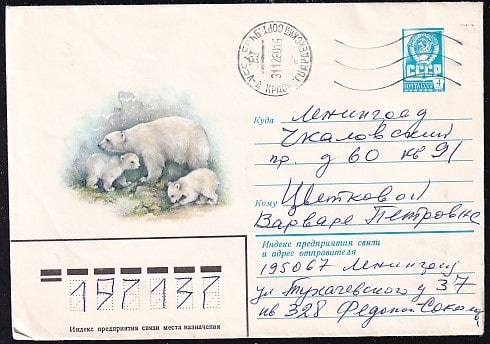 СССР
ПОЧТА
Куда Ленинград
Чкаловский
пр. д 60 кв 91
Кому Цветковой
Варваре Петровне
Индекс предприятия связи
и адрес отправителя
195067 Ленинград
ул Тухачевского д 37
кв 328
197137
Индекс предприятия связи места назначения